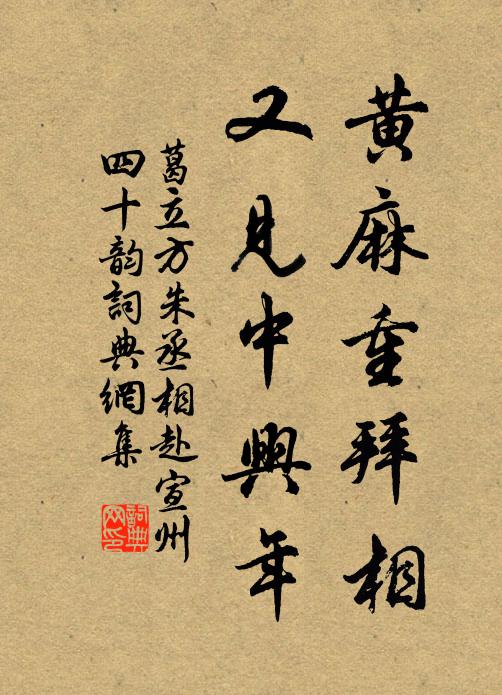 黃麻重拜相
又見中興年
葛立方朱丞相赴宣州
四十韵詞典網集
詞典
网印